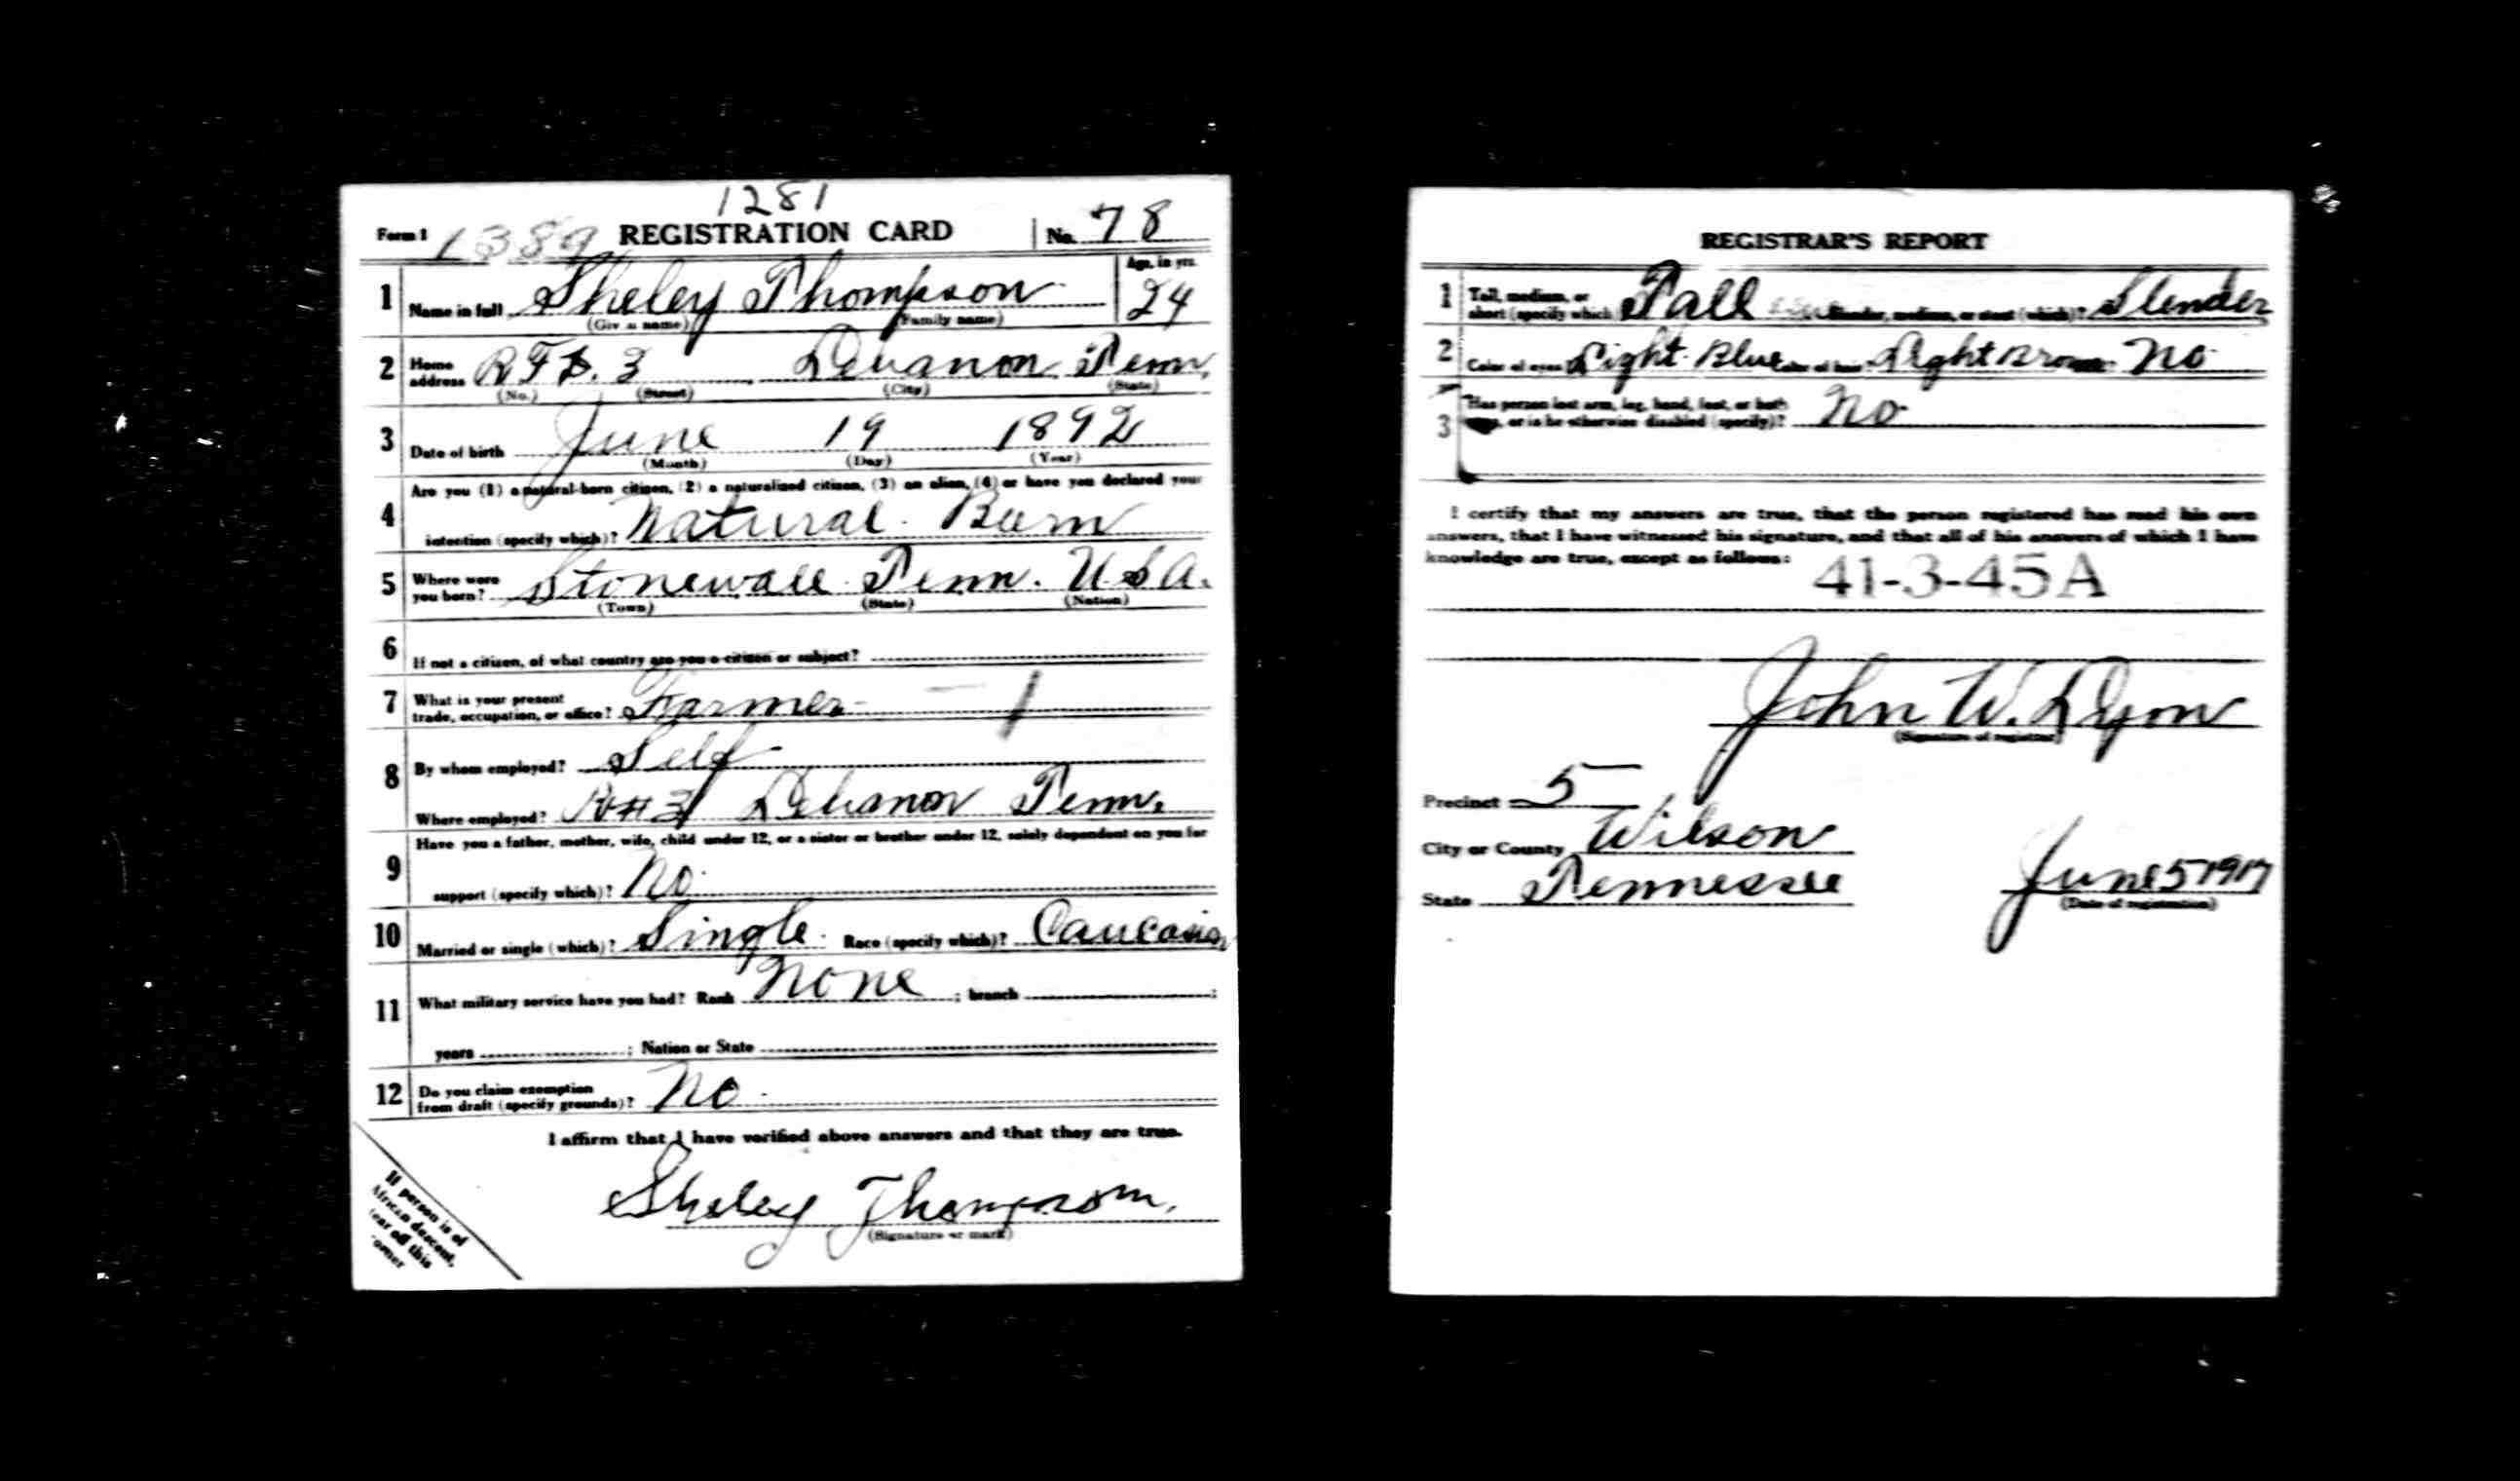 1281
Form 1 1389 REGISTRATION CARD No. 78
1 Name in full Sheley Thompson Age, in yrs. 24
(Given name) (Family name)
2 Home address R F D. 3 Lebanon Tenn.
(No.) (Street) (City) (State)
3 Date of birth June 19 1892
(Month) (Day) (Year)
Are you (1) a natural-born citizen, (2) a naturalized citizen, (3) an alien, (4) or have you declared your
4 intention (specify which)? Natural Born
5 Where were you born? Stonewall Tenn. U.S.A.
(Town) (State) (Nation)
6 If not a citizen, of what country are you a citizen or subject?
7 What is your present trade, occupation, or office? Farmer
8 By whom employed? Self
Where employed? R#3 Lebanon Tenn.
Have you a father, mother, wife, child under 12, or a sister or brother under 12, solely dependent on you for
9 support (specify which)? No
10 Married or single (which)? Single Race (specify which)? Caucasian
11 What military service have you had? Rank None ; branch ;
years ; Nation or State
12 Do you claim exemption from draft (specify grounds)? No
I affirm that I have verified above answers and that they are true.
Sheley Thompson,
(Signature or mark)
If person is of
African descent,
tear off this
corner
REGISTRAR'S REPORT
1 Tall, medium, or short (specify which) Tall Slender, medium, or stout (which)? Slender
2 Color of eyes Light Blue Color of hair Light Brown No
3 Has person lost arm, leg, hand, foot, or both
eyes, or is he otherwise disabled (specify)? No
I certify that my answers are true, that the person registered has read his own
answers, that I have witnessed his signature, and that all of his answers of which I have
knowledge are true, except as follows:
41-3-45 A
John W. Dyon
(Signature of registrar)
Precinct 5
City or County Wilson
State Tennessee June 5 1917
(Date of registration)